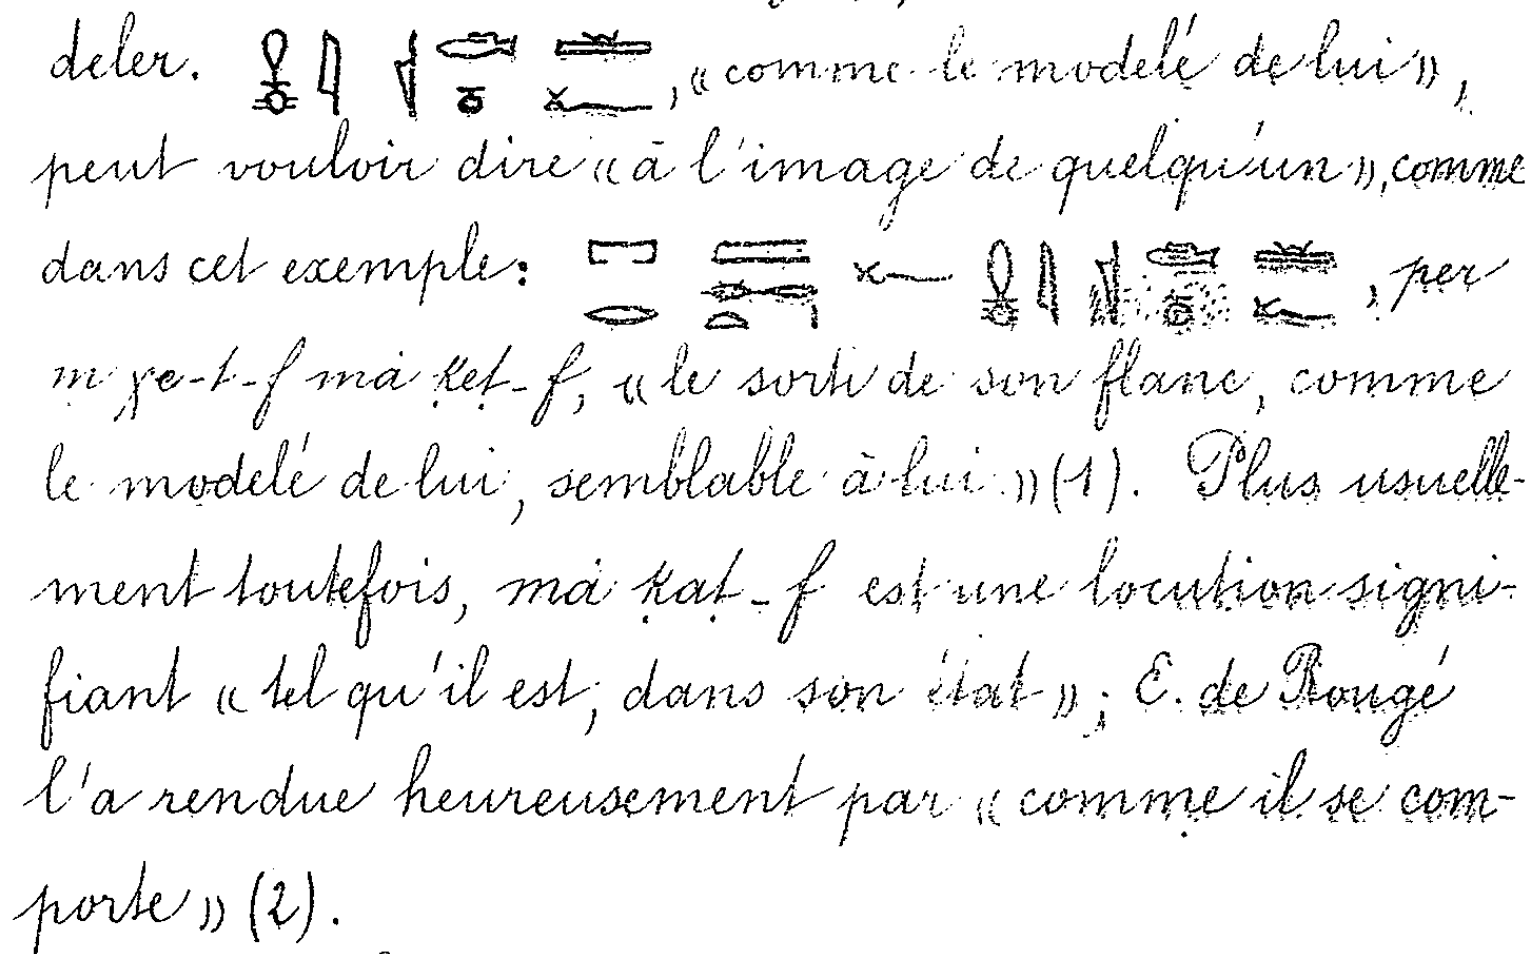 deler. , «comme le modelé de lui»,
peut vouloir dire «à l'image de quelqu'un», comme
dans cet exemple: , per
m χe-t-f má ḳeṭ-f, «le sorti de son flanc, comme
le modelé de lui, semblable à lui»(1). Plus usuelle-
ment toutefois, má ḳaṭ-f est une locution signi-
fiant «tel qu'il est, dans son état»; E. de Rougé
l'a rendue heureusement par «comme il se com-
porte»(2).